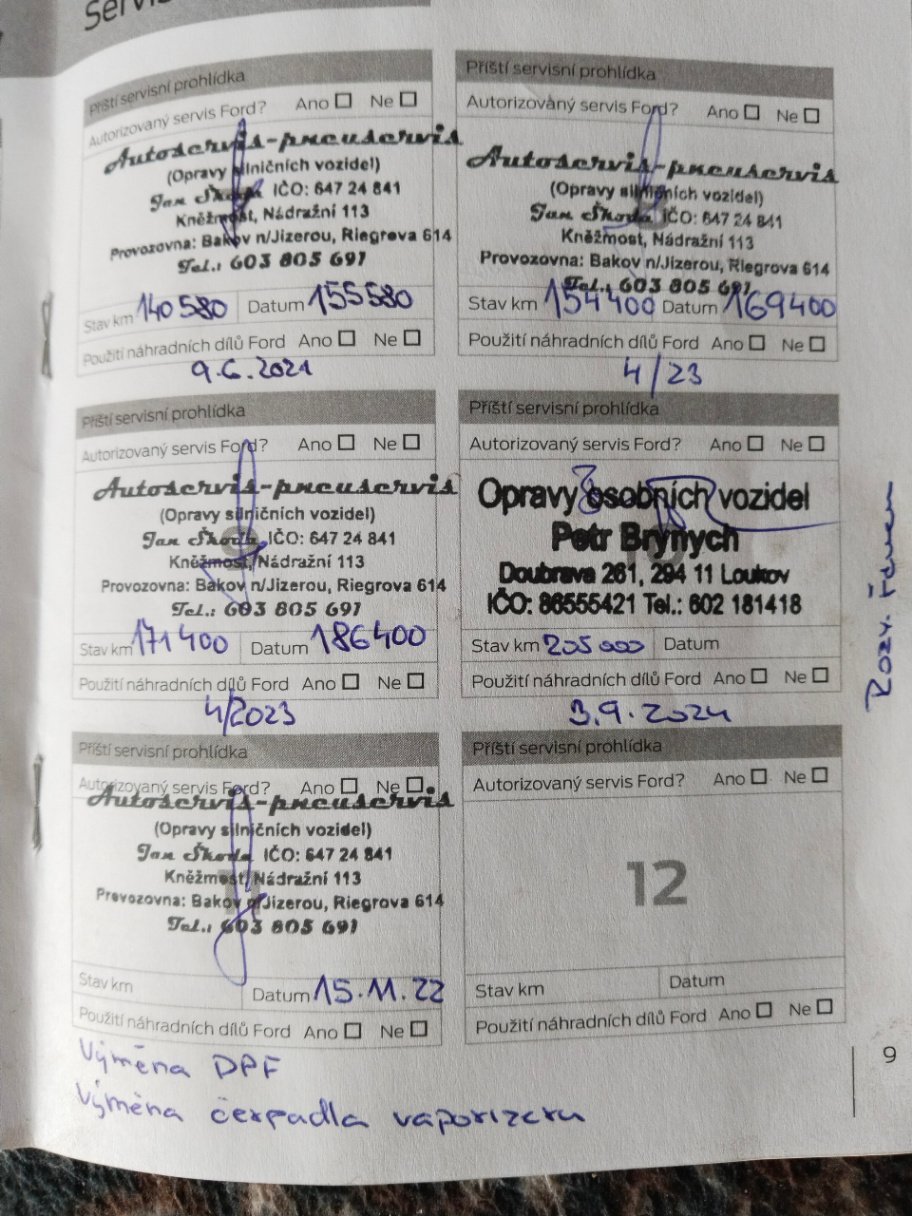 Servis
Příští servisní prohlídka
Autorizovaný servis Ford? Ano Ne
Autoservis-pneuservis
(Opravy silničních vozidel)
Jan Škoda IČO: 647 24 841
Kněžmost, Nádražní 113
Provozovna: Bakov n/Jizerou, Riegrova 614
Tel.: 603 805 691
Stav km 140 580 Datum 155580
Použití náhradních dílů Ford Ano Ne
9.6.2021
Příští servisní prohlídka
Autorizovaný servis Ford? Ano Ne
Autoservis-pneuservis
(Opravy silničních vozidel)
8
Jan Škoda IČO: 647 24 841
Kněžmost, Nádražní 113
Provozovna: Bakov n/Jizerou, Riegrova 614
Tel.: 603 805 691
Stav km 154 400 Datum 169400
Použití náhradních dílů Ford Ano Ne
4/23
Příští servisní prohlídka
Autorizovaný servis Ford? Ano Ne
Autoservis-pneuservis
(Opravy silničních vozidel)
9
Jan Škoda IČO: 647 24 841
Kněžmost, Nádražní 113
Provozovna: Bakov n/Jizerou, Riegrova 614
Tel.: 603 805 691
Stav km 171 400 Datum 186400
Použití náhradních dílů Ford Ano Ne
4/2023
Příští servisní prohlídka
Autorizovaný servis Ford? Ano Ne
Opravy osobních vozidel
Petr Brynych
Doubrava 261, 294 11 Loukov
IČO: 86555421 Tel.: 602 181418
Stav km 205 000 Datum
Použití náhradních dílů Ford Ano Ne
3.9.2024
Rozv. řemen
Příští servisní prohlídka
Autorizovaný servis Ford? Ano Ne
Autoservis-pneuservis
(Opravy silničních vozidel)
Jan Škoda IČO: 647 24 841
Kněžmost, Nádražní 113
11
Provozovna: Bakov n/Jizerou, Riegrova 614
Tel.: 603 805 691
Stav km Datum 15.11.22
Použití náhradních dílů Ford Ano Ne
Výměna DPF
Výměna čerpadla vaporizeru
Příští servisní prohlídka
Autorizovaný servis Ford? Ano Ne
12
Stav km Datum
Použití náhradních dílů Ford Ano Ne
9